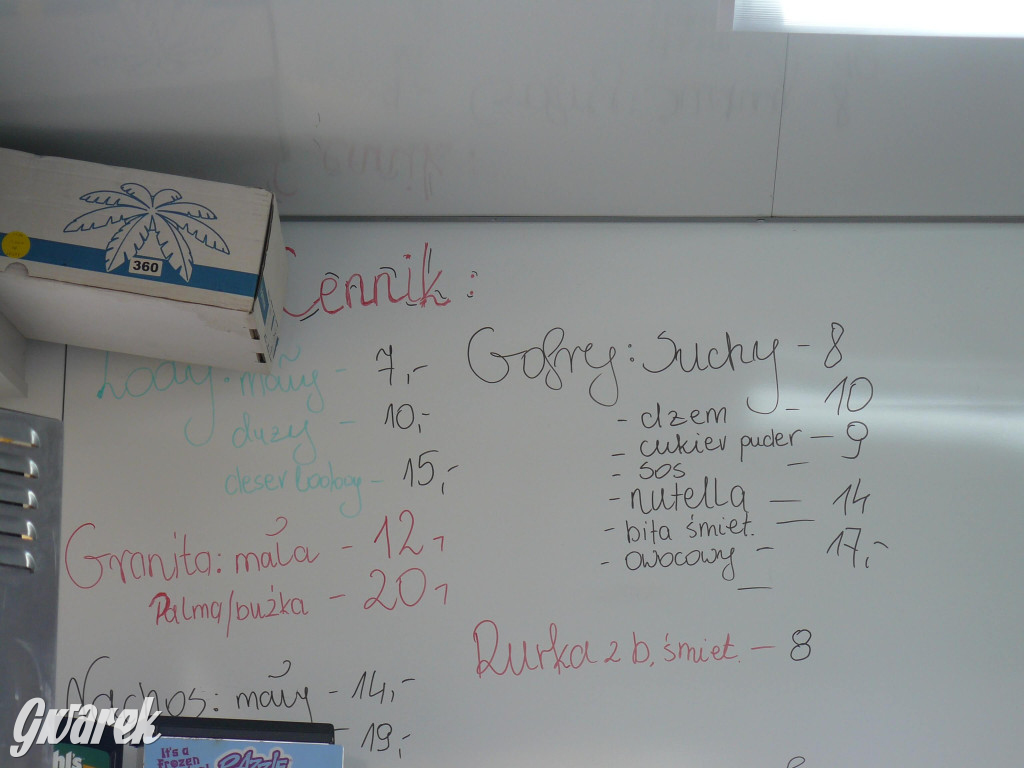 360
Cennik:
Lody: mały - 7,-
duży - 10,-
deser lodowy - 15,-
Granita: mała - 12,-
Palma/buźka - 20,-
Nachos: mały - 14,-
- 19,-
Gofry: Suchy - 8
- dżem - 10
- cukier puder - 9
- sos -
- nutella - 14
- bita śmiet. - 17,-
- owocowy -
Rurka z b. śmiet. - 8
Gwarek
It's a
Frozen